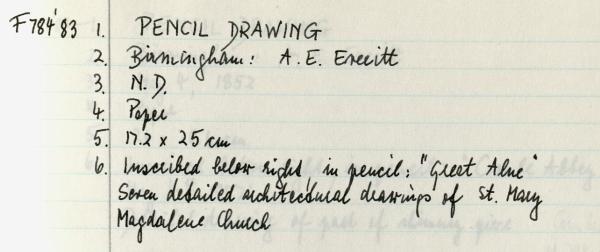 F784'83 1. PENCIL DRAWING
2. Birmingham: A. E. Everitt
3. N.D.
4. Paper
5. 17.2 x 25 cm
6. Inscribed below right in pencil: "Great Alne"
Seven detailed architectural drawings of St. Mary
Magdalene Church